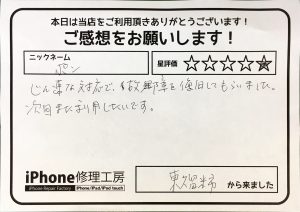 本日は当店をご利用頂きありがとうございます!
ご感想をお願いします!
ニックネーム
ポン
星評価 ☆☆☆☆☆
じん速な対応で、故障を復旧してもらいました。
次回また利用したいです。
iPhone修理工房
iPhone Repair Factory iPhone/iPad/iPod touch
東久留米市 から来ました